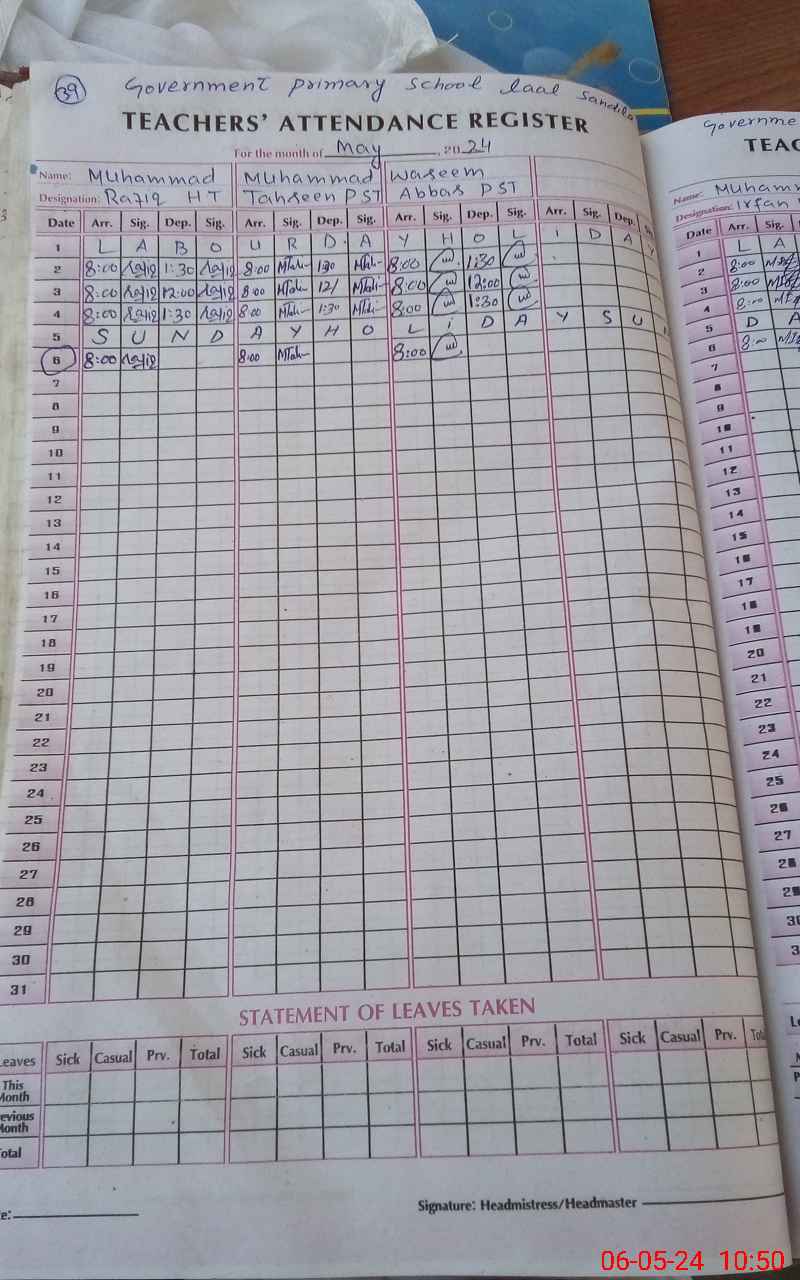 39 Government primary school laal Sandila
TEACHERS' ATTENDANCE REGISTER
For the month of May, 2024
Name: Muhammad Muhammad Waseem
Designation: Rafiq HT Tahseen PST Abbas PST
Date Arr. Sig. Dep. Sig. Arr. Sig. Dep. Sig. Arr. Sig. Dep. Sig. Arr. Sig. Dep.
1 L A B O U R D A Y H O L I D A Y
2 8:00 Rafiq 1:30 Rafiq 8:00 MTah 1:30 MTah 8:00 1:30
3 8:00 Rafiq 12:00 Rafiq 8:00 MTah 12/ MTah 8:00 12:00
4 8:00 Rafiq 1:30 Rafiq 8:00 MTah 1:30 MTah 8:00 1:30
5 S U N D A Y H O L i D A Y S U
6 8:00 Rafiq 8:00 MTah 8:00
7
8
9
10
11
12
13
14
15
16
17
18
19
20
21
22
23
24
25
26
27
28
29
30
31
STATEMENT OF LEAVES TAKEN
Leaves Sick Casual Prv. Total Sick Casual Prv. Total Sick Casual Prv. Total Sick Casual Prv. Total
This
Month
Previous
Month
Total
Signature: Headmistress/Headmaster
Governme
TEAC
Name: Muhamm
Designation: Irfan
Date Arr. Sig.
1 L A
2 8:00
3 8:00
4 8:00
5 D A
6 8:00
7
8
9
10
11
12
13
14
15
16
17
18
19
20
21
22
23
24
25
26
27
28
29
30
3
06-05-24 10:50